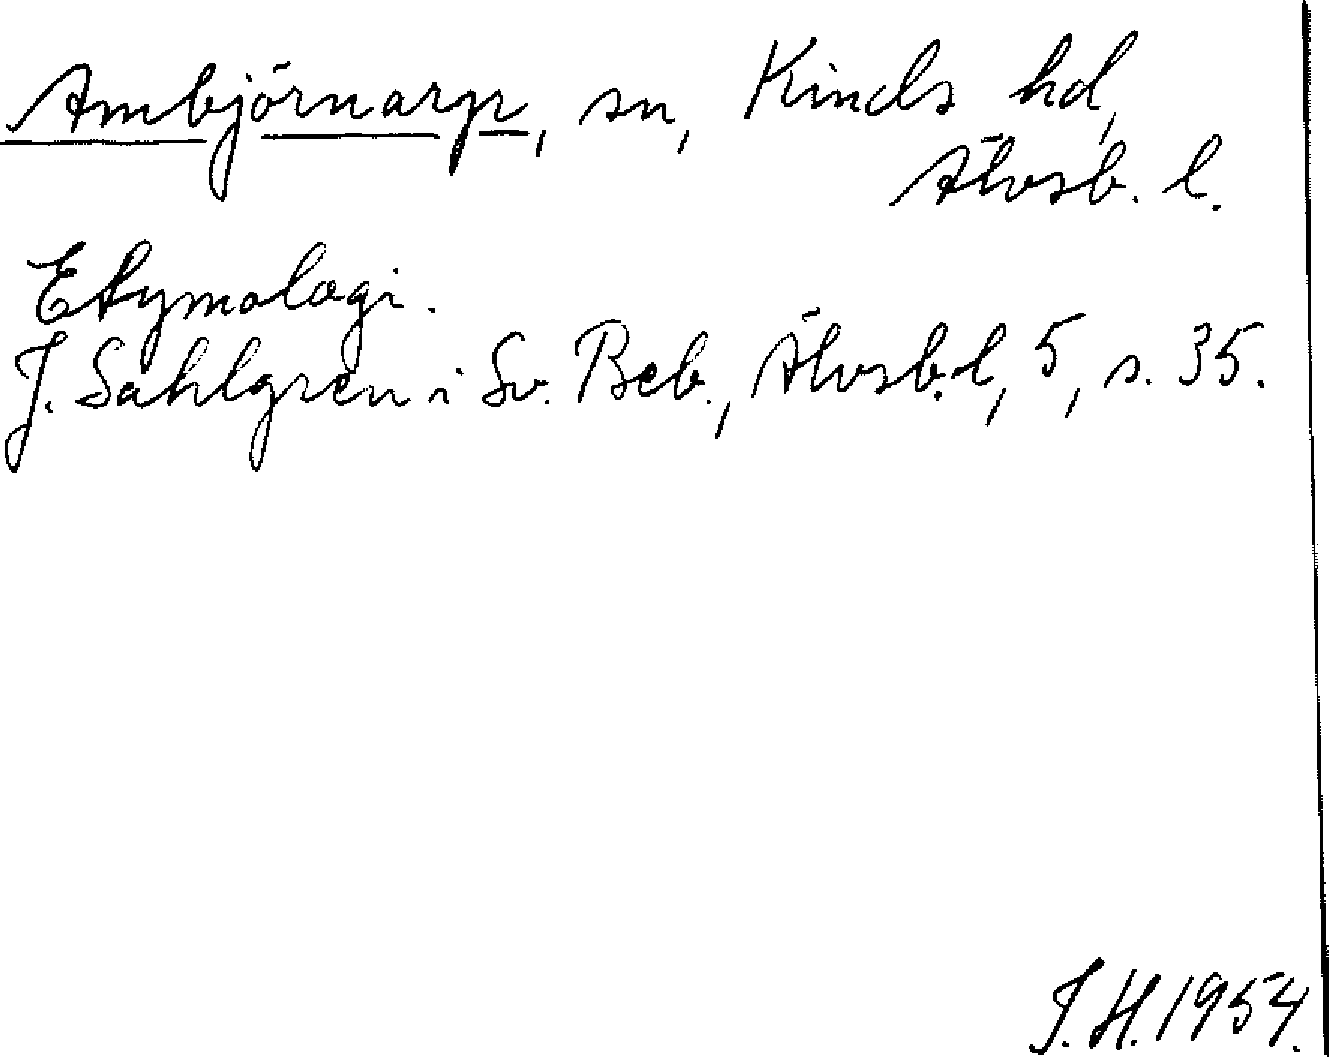 Ambjörnarp, sn, Kinds hd,
Älvsb. l.
Etymologi.
J. Sahlgren i Sv. Beb., Älvsb. l, 5, s. 35.
J. H. 1954.